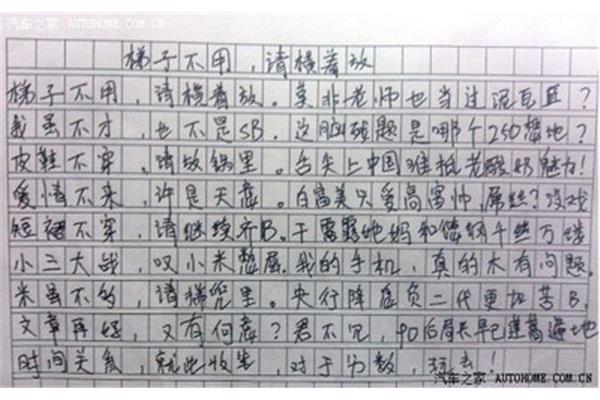 汽车之家 AUTOHOME.COM.CN
梯子不用,请横着放
梯子不用,请横着放。莫非老师也当过泥瓦匠?
我虽不才,也不是SB。这脑残题是哪个250想地?
皮鞋不穿,请放锅里。舌尖上中国难抵老酸奶魅力!
爱情不来,许是天意。白富美只爱高富帅,屌丝?没戏
短裙不穿,请继续齐B。干露露她妈和你俩千丝万缕
小三大战,叹小米憋屈。我的手机,真的木有问题。
米虽不多,请揣兜里。央行降息负二代更加苦B。
文章再好,又有何意?君不见,90后局长早已遍地
时间关系,就此收笔,对于分数,玩去!
汽车之家 AUTOHOME.COM.CN